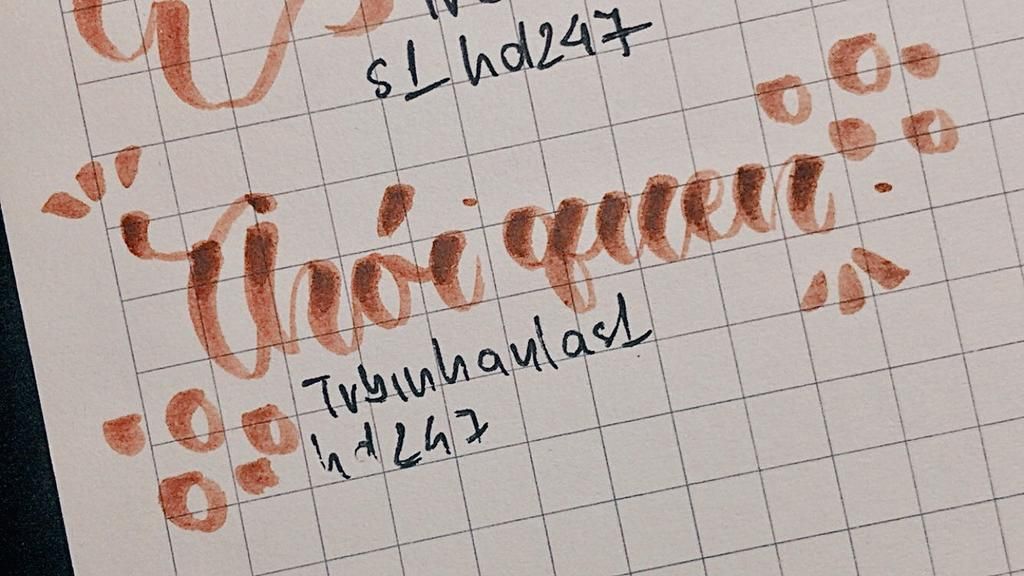 s1_hd247
Thói quen.
Trbinhaulas1
hd247